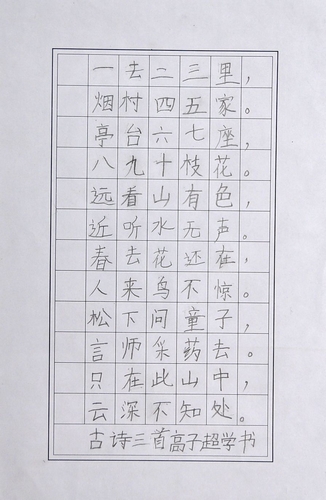 一去二三里，
烟村四五家。
亭台六七座，
八九十枝花。
远看山有色，
近听水无声。
春去花还在，
人来鸟不惊。
松下问童子，
言师采药去。
只在此山中，
云深不知处。
古诗三首高子超学书